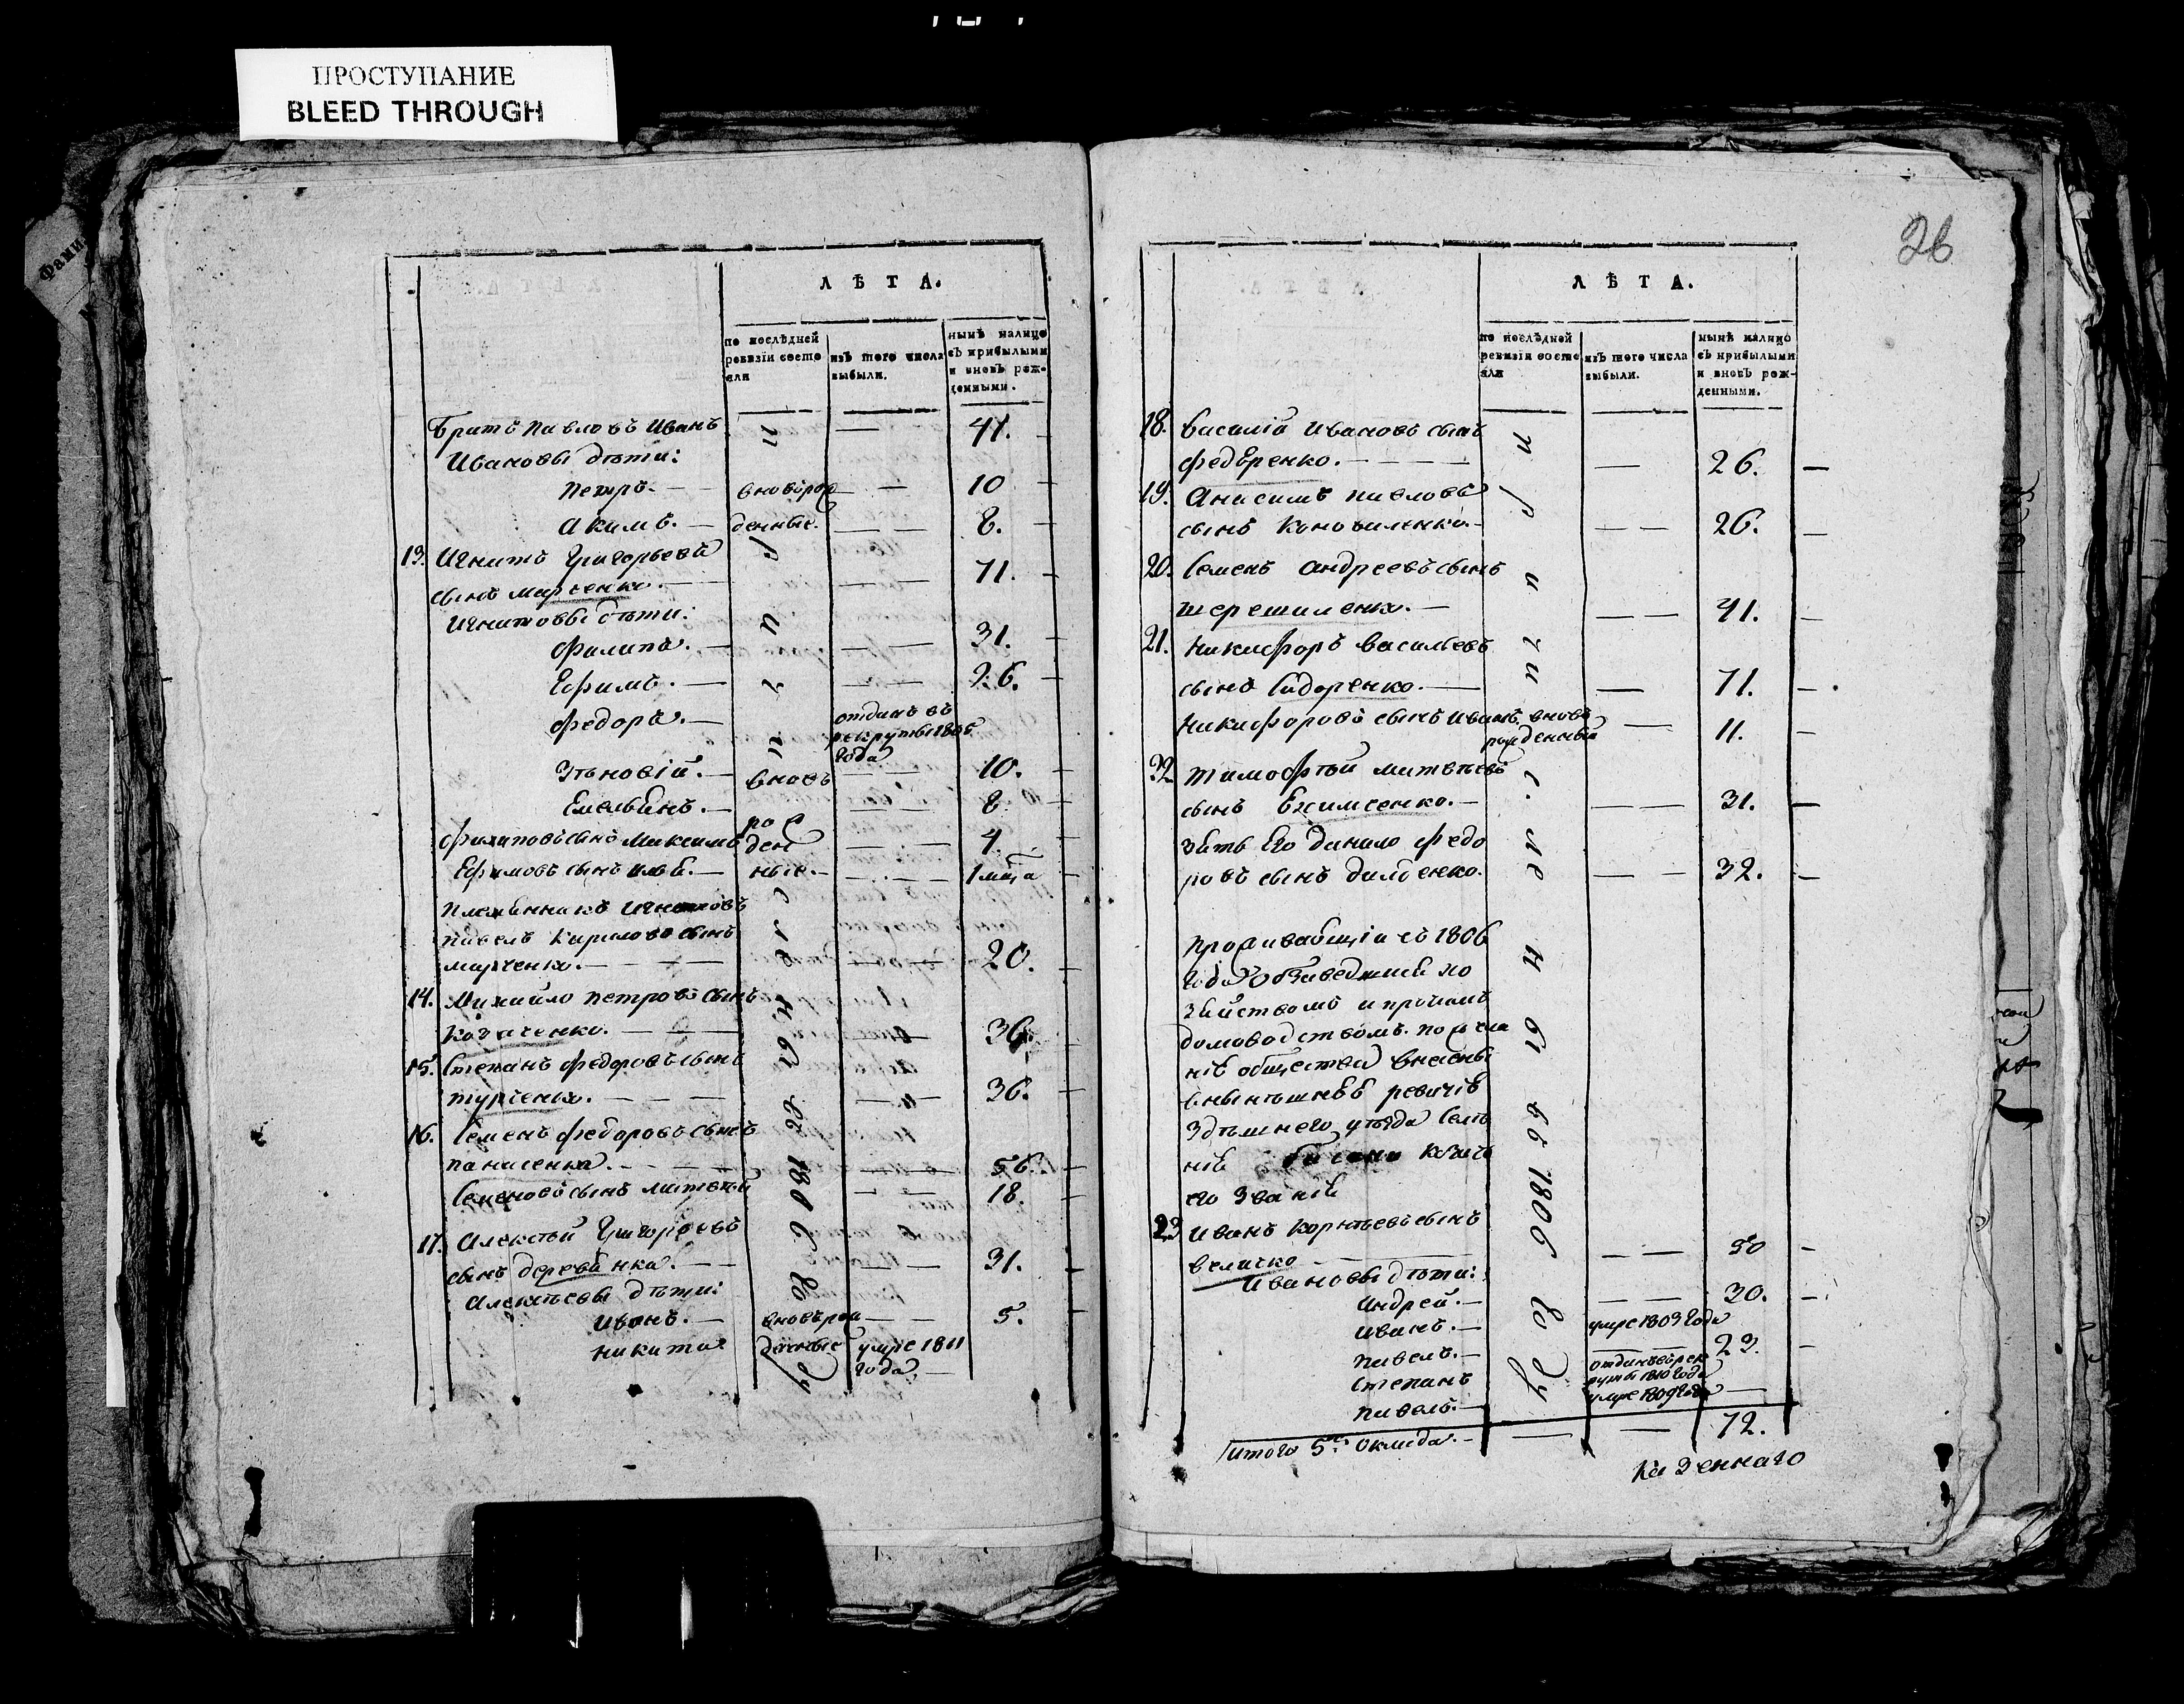 ПРОСТУПАНИЕ
BLEED THROUGH
Фами
26
ЛѢТА.
по послѣдней ревизіи состояли
изъ того числа выбыли.
нынѣ налицо съ прибылыми и вновь рожденными.
Братъ Павловъ Иванъ 41.
Ивановы дѣти:
Петръ. вновьрож 10
Акимъ. денные. 8.
13. Игнатъ Григорьевъ
сынъ Марченко. 71.
Игнатовы дѣти:
Филипъ. 31.
Ефимъ. 26.
Федоръ. отданъ въ рекруты 1805 года
Зѣновій. вновь 10.
Емельянъ. рож 8
Филиповъ сынъ Максимъ ден 4.
Ефимовъ сынъ Илья. ные. 1 мѣца
Племянникъ Игнатовъ
Павелъ Кириловъ сынъ
Марченко. 20.
14. Михайло Петровъ сынъ
Козаченко. 36.
15. Степанъ Федоровъ сынъ
Турченко. 36.
16. Семенъ Федоровъ сынъ
Панасенко. 56.
Семеновъ сынъ Матвѣй 18.
17. Алексѣй Григорьевъ
сынъ Деревянка. 31.
Алексѣевы дѣти:
Иванъ. вновьрож 5.
Никита денные умре 1811 года
причислены въ 1806 году
ЛѢТА.
по послѣдней ревизіи состояли
изъ того числа выбыли.
нынѣ налицо съ прибылыми и вновь рожденными.
18. Василій Ивановъ сынъ
Федоренко. 26.
19. Анисимъ Павловъ
сынъ Коноваленко. 26.
20. Семенъ Андреевъ сынъ
41.
21. Никифоръ Васильевъ
сынъ Сидоренко. 71.
Никифоровъ сынъ Иванъ вновь рожденный 11.
22 Тимофѣй Матвѣевъ
сынъ 31.
Зять Его Данило Федо
ровъ сынъ 32.
Проживающіи съ 1806
года обзаведшіи хо
зяйствомъ и протчимъ
домоводствомъ. по
нію общества внесены
внынѣшнѣю ревизію
Здѣшнего уѣзда
его званія
23 Иванъ Корнѣевъ сынъ
Величко 50
Ивановы дѣти:
Андрей. 30.
Иванъ. умре 1803 года
Павелъ. 23.
Степанъ отданъ въ рекруты 1810 года
Павелъ. умре 1809 года
причислены въ 1806 году
Итого 5го оклада. 72.
Казеннаго